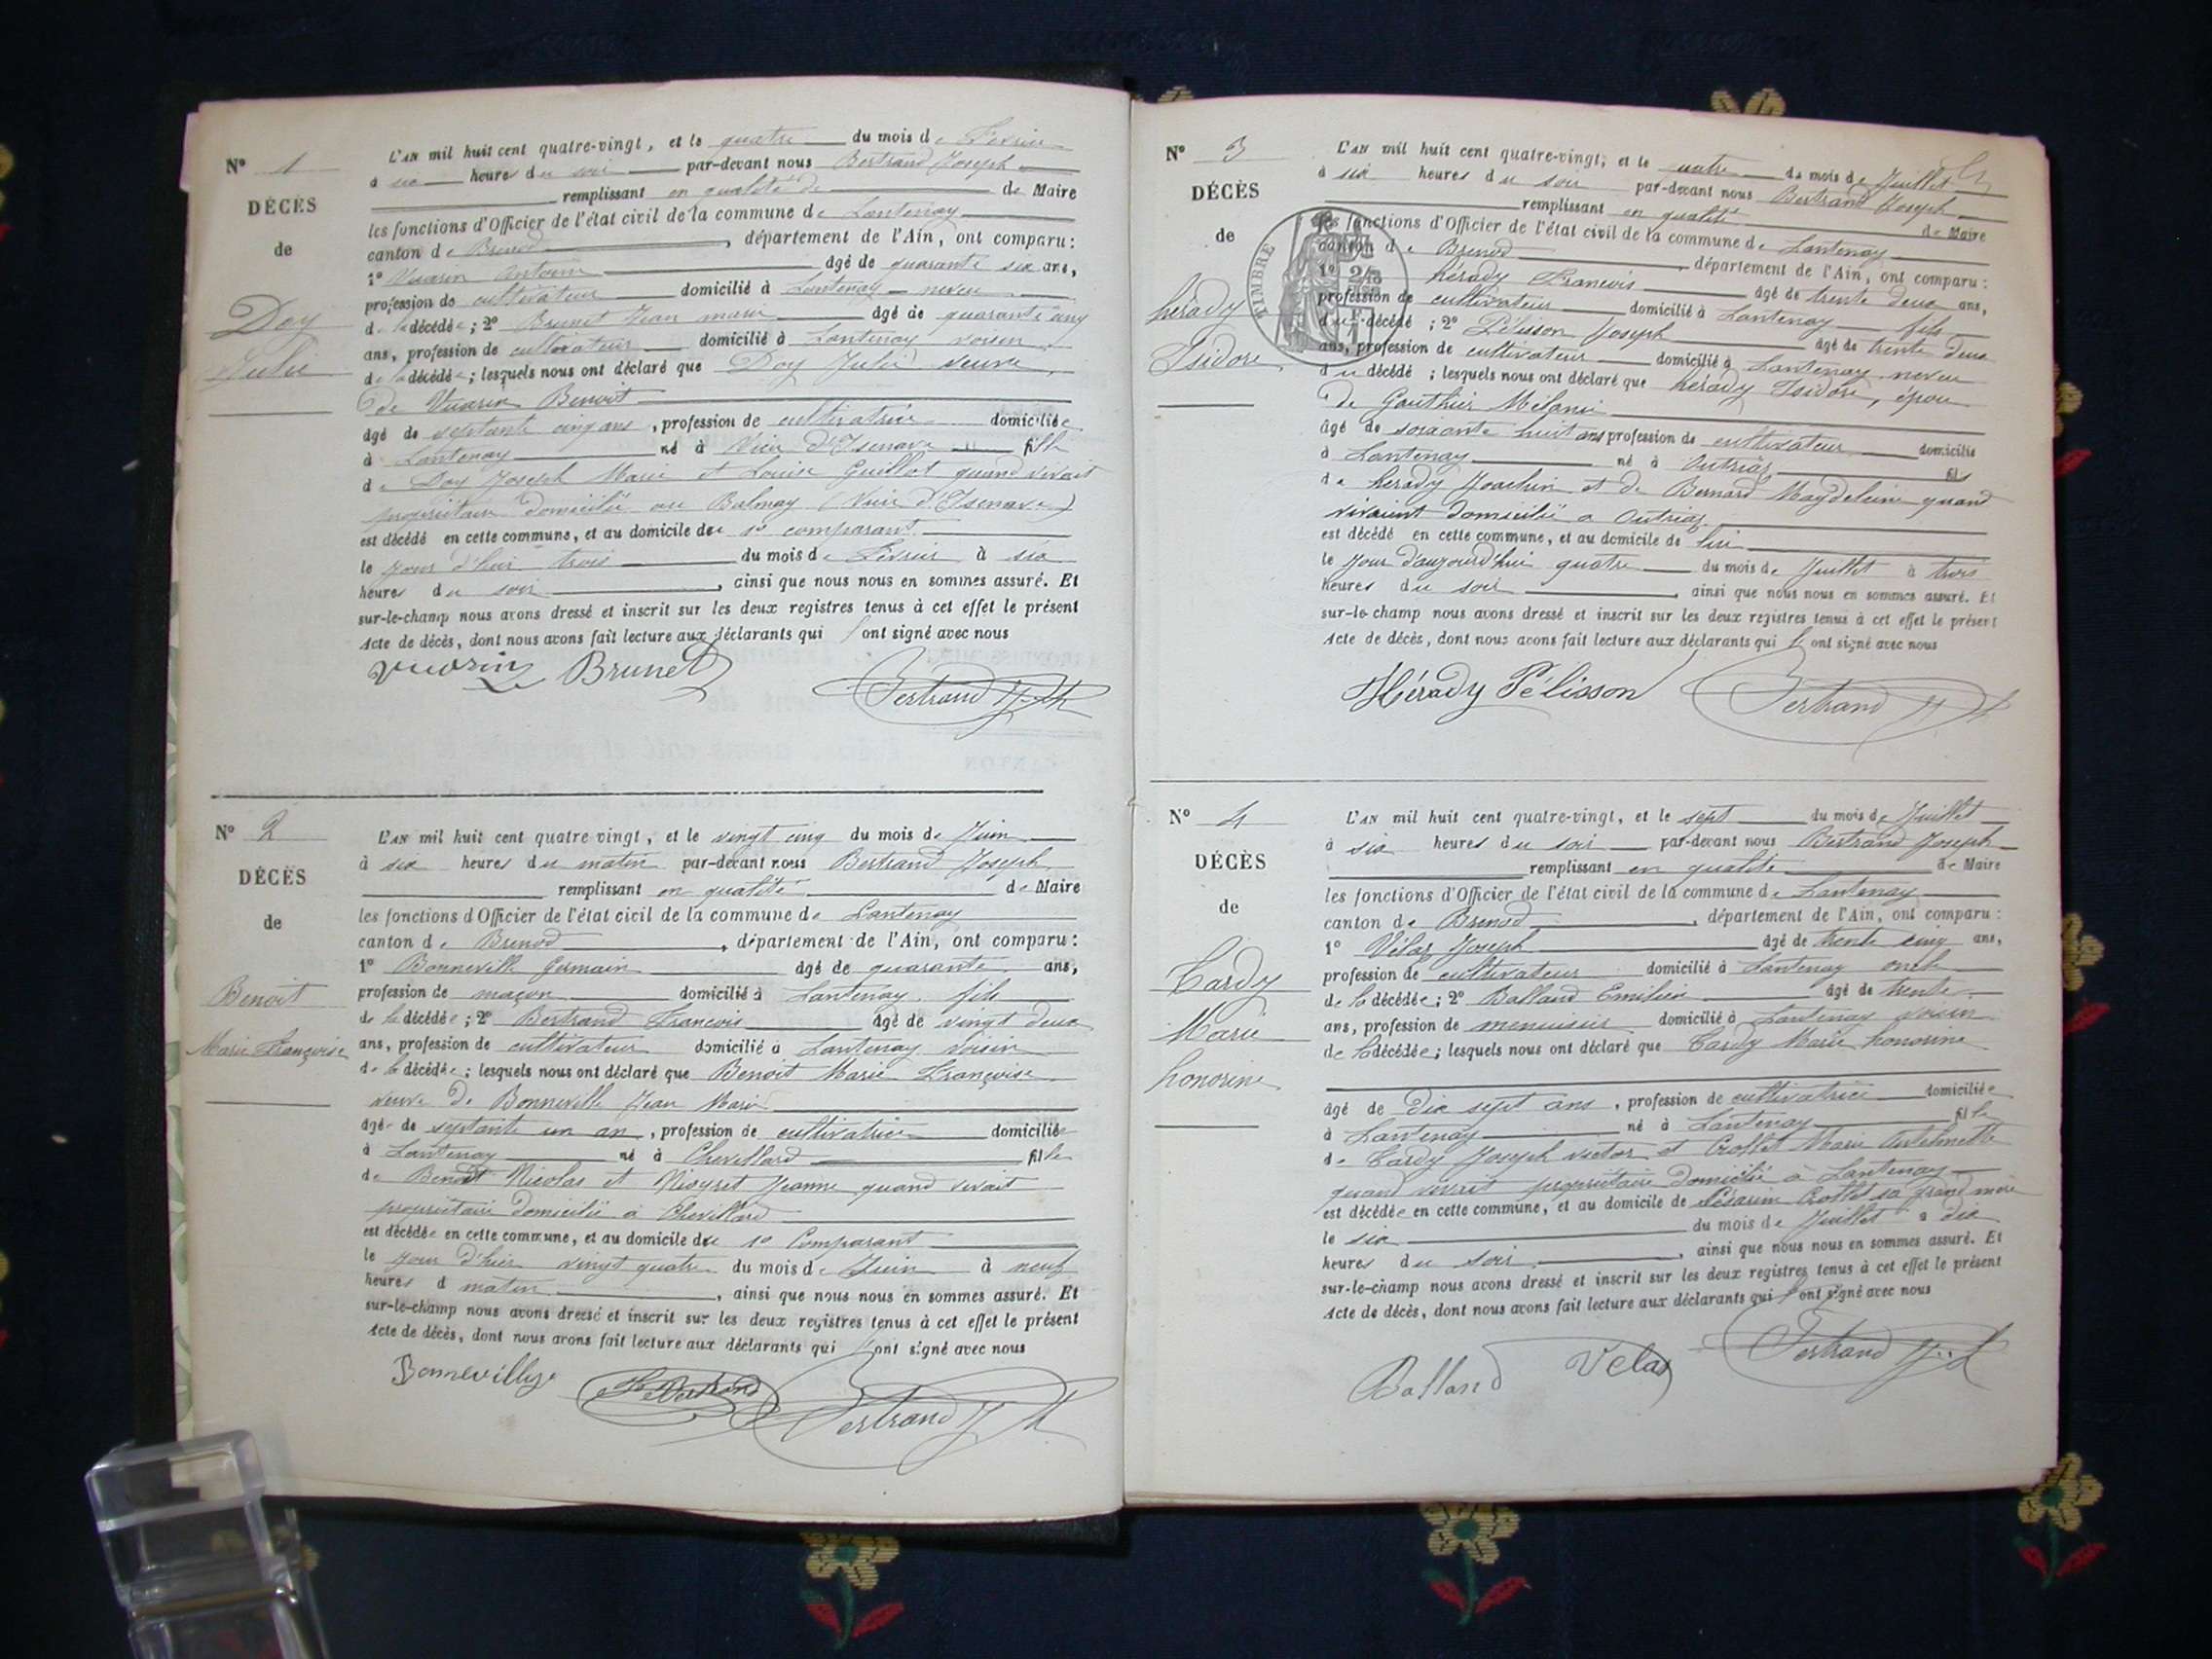 N° 1
DÉCÈS
de
Doy
Julie
L'AN mil huit cent quatre-vingt, et le quatre du mois de Février
à six heures du soir par-devant nous Bertrand Joseph
remplissant en qualité de de Maire
les fonctions d'Officier de l'état civil de la commune de Lantenay
canton de Brenod, département de l'Ain, ont comparu :
1° Vuarin Antoine âgé de quarante six ans,
profession de cultivateur domicilié à Lantenay neveu
de la décédée ; 2° Brunet Jean marie âgé de quarante cinq
ans, profession de cultivateur domicilié à Lantenay voisin
de la décédée ; lesquels nous ont déclaré que Doy Julie veuve
de Vuarin Benoit
âgé de septante cinq ans, profession de cultivatrice domiciliée
à Lantenay né à Vieu d'Isenave fille
de Doy Joseph Marie et Louise Guillot quand vivait
propriétaire domicilié au Balmay (Vieu d'Isenave)
est décédé en cette commune, et au domicile du 1er comparant
le jour d'hier trois du mois de Février à six
heures du soir, ainsi que nous nous en sommes assuré. Et
sur-le-champ nous avons dressé et inscrit sur les deux registres tenus à cet effet le présent
Acte de décès, dont nous avons fait lecture aux déclarants qui l'ont signé avec nous
Vuarin Brunet
Bertrand Jph
N° 2
DÉCÈS
de
Benoit
Marie Françoise
L'AN mil huit cent quatre vingt, et le vingt cinq du mois de Juin
à six heures du matin par-devant nous Bertrand Joseph
remplissant en qualité de Maire
les fonctions d'Officier de l'état civil de la commune de Lantenay
canton de Brenod, département de l'Ain, ont comparu :
1° Bonneville Germain âgé de quarante ans,
profession de maçon domicilié à Lantenay fils
de la décédée ; 2° Bertrand François âgé de vingt deux
ans, profession de cultivateur domicilié à Lantenay voisin
de la décédée ; lesquels nous ont déclaré que Benoit Marie Françoise
veuve de Bonneville Jean Marie
âgée de septante un an, profession de cultivatrice domiciliée
à Lantenay né à Chevillard fille
de Benoit Nicolas et Jeanne quand vivait
propriétaire domicilié à Chevillard
est décédée en cette commune, et au domicile du 1er Comparant
le jour d'hier vingt quatre du mois de Juin à neuf
heures d matin, ainsi que nous nous en sommes assuré. Et
sur-le-champ nous avons dressé et inscrit sur les deux registres tenus à cet effet le présent
Acte de décès, dont nous avons fait lecture aux déclarants qui l'ont signé avec nous
Bonneville
Bertrand
Bertrand Jph
N° 3
DÉCÈS
de
hérady
Isidore
TIMBRE
L'AN mil huit cent quatre-vingt, et le quatre du mois de Juillet
à six heures du soir par-devant nous Bertrand Joseph
remplissant en qualité de Maire
les fonctions d'Officier de l'état civil de la commune de Lantenay
canton de Brenod, département de l'Ain, ont comparu :
1° hérady Francois âgé de trente deux ans,
profession de cultivateur domicilié à Lantenay fils
du décédé ; 2° Pélisson Joseph âgé de trente deux
ans, profession de cultivateur domicilié à Lantenay neveu
du décédé ; lesquels nous ont déclaré que hérady Isidore, époux
de Gauthier Mélanie
âgé de soixante huit ans profession de cultivateur domicilié
à Lantenay né à Outriaz fils
de hérady Joachin et de Bernard Magdeleine quand
vivaient domicilié a Outriaz
est décédé en cette commune, et au domicile de lui
le jour d'aujourd'hui quatre du mois de Juillet à trois
heures du soir, ainsi que nous nous en sommes assuré. Et
sur-le-champ nous avons dressé et inscrit sur les deux registres tenus à cet effet le présent
Acte de décès, dont nous avons fait lecture aux déclarants qui l'ont signé avec nous
Hérady Pélisson
Bertrand
N° 4
DÉCÈS
de
Tardy
Marie
honorine
L'AN mil huit cent quatre-vingt, et le sept du mois de Juillet
à six heures du soir par-devant nous Bertrand Joseph
remplissant en qualité de Maire
les fonctions d'Officier de l'état civil de la commune de Lantenay
canton de Brenod, département de l'Ain, ont comparu :
1° Vélaz Joseph âgé de trente cinq ans,
profession de cultivateur domicilié à Lantenay oncle
de la décédée ; 2° Balland Emilien âgé de trente
ans, profession de menuisier domicilié à Lantenay voisin
de la décédée ; lesquels nous ont déclaré que Tardy Marie honorine
âgé de dix sept ans, profession de cultivatrice domiciliée
à Lantenay né à Lantenay fille
de Tardy Joseph victor et Crollet Marie Anthelmette
quand vivait propriétaire domicilié à Lantenay
est décédée en cette commune, et au domicile de Césarine Crollet sa grand mère
le six du mois de Juillet à dix
heures du soir, ainsi que nous nous en sommes assuré. Et
sur-le-champ nous avons dressé et inscrit sur les deux registres tenus à cet effet le présent
Acte de décès, dont nous avons fait lecture aux déclarants qui l'ont signé avec nous
Balland Velaz
Bertrand